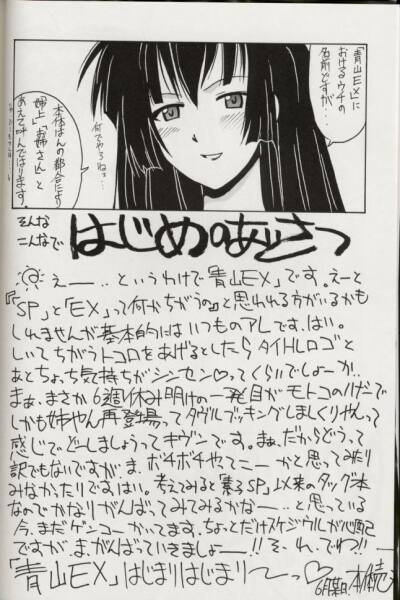 「青山EX」に
おけるウチの
名前どすが…
何でやろねぇ…
本体はんの都合により
姉上「お姉さん」と
あえて呼んではります。
そんな
こんなで
はじめのあいさつ
えー…というわけで「青山EX」です。えーと
『「SP」と「EX」って何がちがうの』と思われる方がいるかも
しれませんが基本的にはいつものアレです、はい。
しいてちがうトコロをあげるとしたらタイトルロゴと
あとちょっち気持ちがシンセン♡ってくらいでしょーか…
まぁ、まさか6週休み明けの一発目がモトコのハダンで
しかも姉やん再登場ってダブルブッキングしまくりやんって
感じで、どーしましょうってキブンです。まぁ、だからどうって
訳でもないですが、ま、ボチボチやってこーかと思ってみたり
みなかったりですはい。考えてみると「素子SP」以来のタッグ本
なのでかなりがんばってみてみるかなー…と思っている
今、まだゲンコーかいてます。ちょっとだけスケジウルが心配
ですが、ま、がんばっていきましょー!!そ、れ、でわ!!
「青山EX」はじまりはじまり〜っ♡